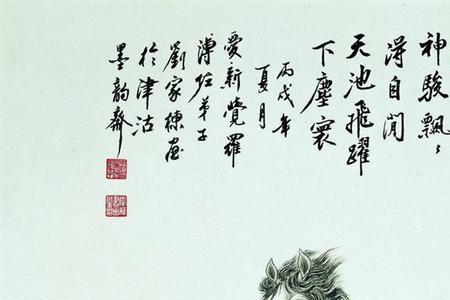 神駿飄〻
得自閒
天池飛躍
下塵寰
丙戌年
夏月
愛新覺羅
溥佐弟子
劉家棟画
於津沽
墨韵齋